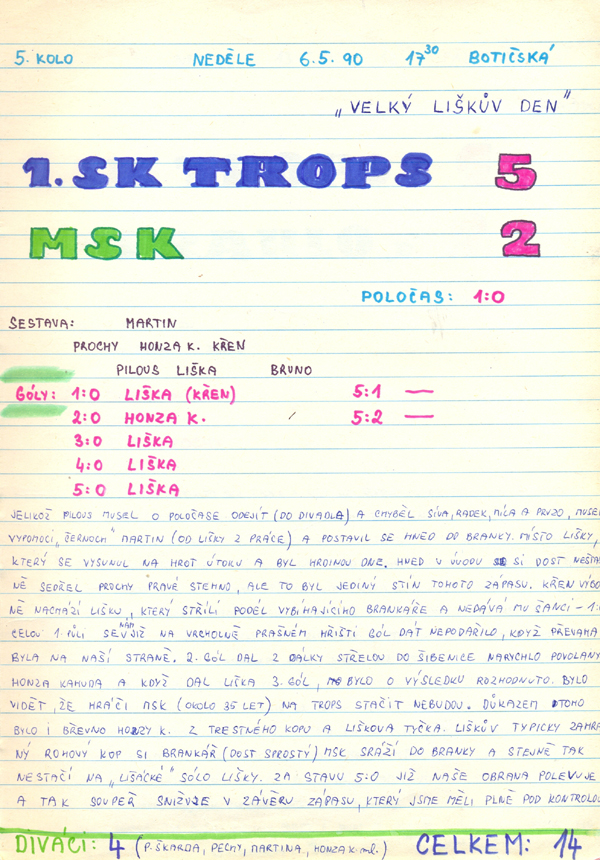 5. KOLO NEDĚLE 6.5.90 17³⁰ BOTIČSKÁ
„VELKÝ LIŠKŮV DEN"
1. SK TROPS 5
MSK 2
POLOČAS: 1:0
SESTAVA: MARTIN
PROCHY HONZA K. KŘEN
PILOUS LIŠKA BRUNO
GÓLY: 1:0 LIŠKA (KŘEN) 5:1 —
2:0 HONZA K. 5:2 —
3:0 LIŠKA
4:0 LIŠKA
5:0 LIŠKA
JELIKOŽ PILOUS MUSEL O POLOČASE ODEJÍT (DO DIVADLA) A CHYBĚL SÍVA, RADEK, MÍLA A PRVZO, MUSEL
VYPOMOCI „ČERNOCH" MARTIN (OD LIŠKY Z PRÁCE) A POSTAVIL SE HNED DO BRANKY. MÍSTO LIŠKY,
KTERÝ SE VYSUNUL NA HROT ÚTOKU A BYL HRDINOU DNE. HNED V ÚVODU SI DOST NEŠŤA
NĚ SEDŘEL PROCHY PRAVÉ STEHNO, ALE TO BYL JEDINÝ STÍN TOHOTO ZÁPASU. KŘEN VÝBO
NĚ NACHÁZÍ LIŠKU, KTERÝ STŘÍLÍ PODÉL VYBÍHAJÍCÍHO BRANKAŘE A NEDÁVÁ MU ŠANCI - 1:
CELOU 1. PŮLI SE NÁM JIŽ NA VRCHOLNĚ PRAŠNÉM HŘIŠTI GÓL DÁT NEPODAŘILO, KDYŽ PŘEVAHA
BYLA NA NAŠÍ STRANĚ. 2. GÓL DAL Z DÁLKY STŘELOU DO ŠIBENICE NARYCHLO POVOLANÝ
HONZA KAHUDA A KDYŽ DAL LIŠKA 3. GÓL, BYLO O VÝSLEDKU ROZHODNUTO. BYLO
VIDĚT, ŽE HRÁČI MSK (OKOLO 35 LET) NA TROPS STAČIT NEBUDOU. DŮKAZEM TOHO
BYLO I BŘEVNO HONZY K. Z TRESTNÉHO KOPU A LIŠKOVA TYČKA. LIŠKŮV TYPICKY ZAHRA
NÝ ROHOVÝ KOP SI BRANKÁŘ (DOST SPROSTÝ) MSK SRÁŽÍ DO BRANKY A STEJNĚ TAK
NESTAČÍ NA „LIŠÁCKÉ" SÓLO LIŠKY. ZA STAVU 5:0 JIŽ NAŠE OBRANA POLEVUJE
A TAK SOUPEŘ SNIŽUJE V ZÁVĚRU ZÁPASU, KTERÝ JSME MĚLI PLNĚ POD KONTROLOU
DIVÁCI: 4 (P. ŠKARDA, PECHY, MARTINA, HONZA K ml.) CELKEM: 14